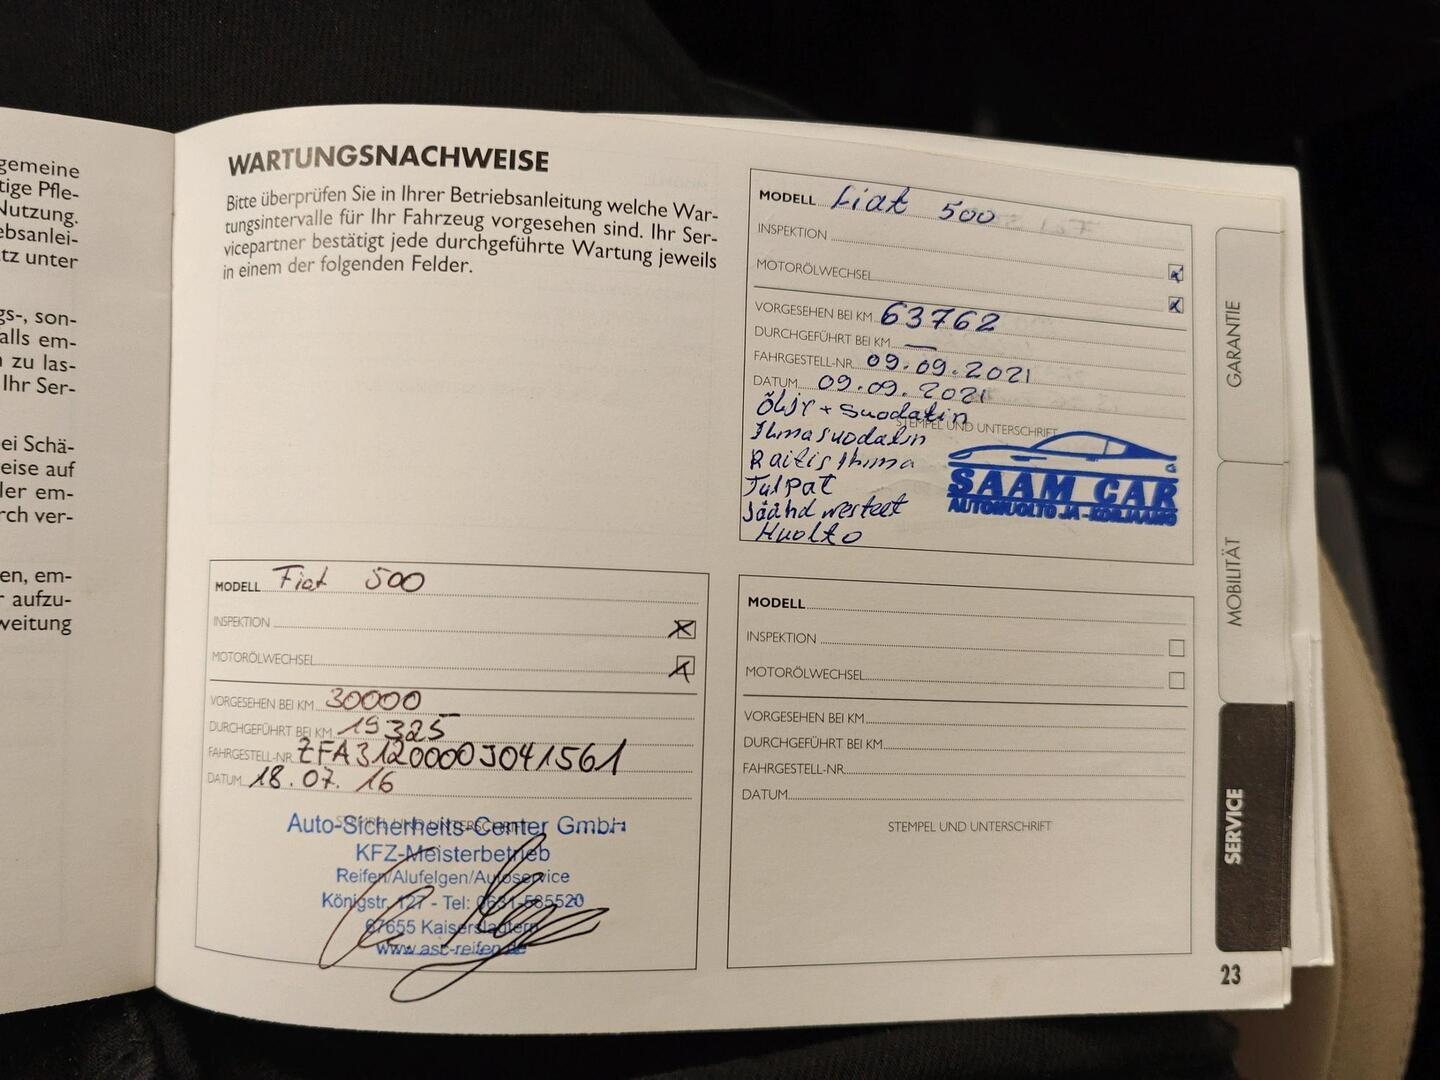 gemeine
tige Pfle-
Nutzung.
ebsanlei-
tz unter
gs-, son-
alls em-
n zu las-
Ihr Ser-
ei Schä-
eise auf
ler em-
rch ver-
en, em-
r aufzu-
weitung
WARTUNGSNACHWEISE
Bitte überprüfen Sie in Ihrer Betriebsanleitung welche War-
tungsintervalle für Ihr Fahrzeug vorgesehen sind. Ihr Ser-
vicepartner bestätigt jede durchgeführte Wartung jeweils
in einem der folgenden Felder.
MODELL Fiat 500
INSPEKTION
MOTORÖLWECHSEL
VORGESEHEN BEI KM 30000
DURCHGEFÜHRT BEI KM 19325
FAHRGESTELL-NR. ZFA3120000J041561
DATUM 18.07.16
STEMPEL UND UNTERSCHRIFT
Auto-Sicherheits-Center GmbH
KFZ-Meisterbetrieb
Reifen/Alufelgen/Autoservice
Königstr. 127 - Tel: 0631-585520
67655 Kaiserslautern
www.asc-reifen.de
MODELL Fiat 500
INSPEKTION
MOTORÖLWECHSEL
VORGESEHEN BEI KM 63762
DURCHGEFÜHRT BEI KM —
FAHRGESTELL-NR. 09.09.2021
DATUM 09.09.2021
Öljy + suodatin
STEMPEL UND UNTERSCHRIFT
Ilmasuodatin
Raitisilma
Tulpat
Jäähd nesteet
Huolto
SAAM CAR
AUTOHUOLTO JA -KORJAAMO
MODELL
INSPEKTION
MOTORÖLWECHSEL
VORGESEHEN BEI KM
DURCHGEFÜHRT BEI KM
FAHRGESTELL-NR.
DATUM
STEMPEL UND UNTERSCHRIFT
GARANTIE
MOBILITÄT
SERVICE
23